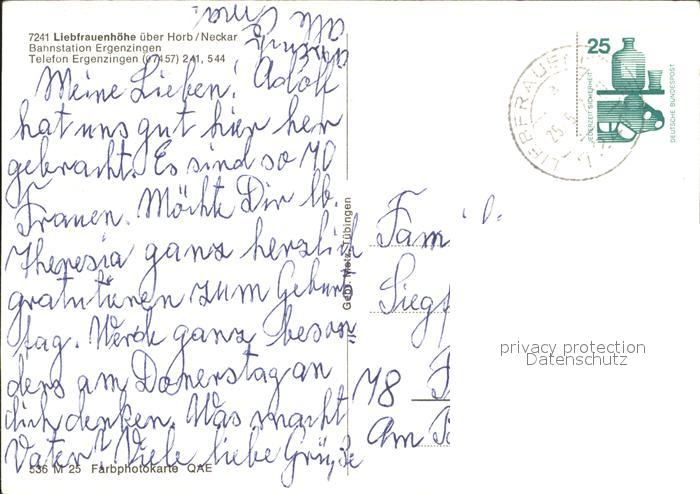 7241 Liebfrauenhöhe über Horb/Neckar
Bahnstation Ergenzingen
Telefon Ergenzingen (07457) 241, 544
Meine Lieben! Adolf
hat uns gut hier her
gebracht. Es sind so 70
Frauen. Möchte Dir lb.
Theresia ganz herzlich
gratulieren zum Geburts
tag. Werde ganz beson=
ders am Donerstag an
dich denken. Was macht
Vater? Viele liebe Grüße
Oma
536 M 25 Farbphotokarte QAE
Gebr. Metz, Tübingen
25
JEDERZEIT SICHERHEIT
DEUTSCHE BUNDESPOST
Fam
Siegf
78 F
Am
privacy protection
Datenschutz